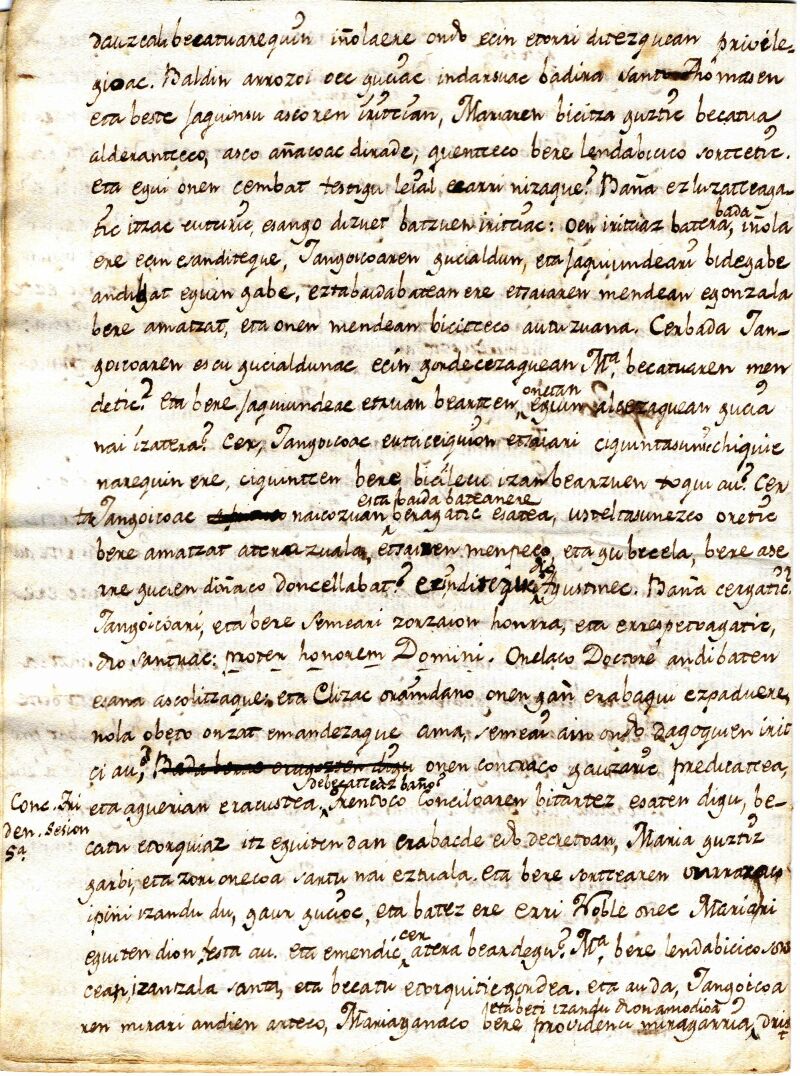 dauzcali becatuarequin iñolaere ondo ecin etorri ditezquean privile=
gioac. Baldin arrozoi oec guciac indarsuac badira santo Thomasen
eta beste jaquinsu ascoren iritcian, Mariaren bicitza guztic becatua
alderantceco, asco añacoac dirade, quentceco bere lendabicico sortcetic.
eta egui onen cembat testigu leial ecarri nizaque? Baña ez luzatceaga-
tic itzac tuturic, esango dizuet batzuen iritciac: oen iritciaz batera, bada iñola
ere ecin esanditeque, Jangoicoaren gucialdun, eta jaquiundeari bidegabe
andibat eguin gabe, eztabaidabatean ere etsaiaren mendean egonzala
bere amatzat, eta onen mendean bicitceco autuzuana. Cerbada Jan-
goicoaren escu gucialdunac ecin gordecezaquean Mª. becatuaren men
detic? eta bere jaquiundeac etzuan beartcen onetan eguin alcezaquean gucia
nai izatera? Cer, Jangoicoac eutciceiquion etsaiari ciquintasunic chiquie
narequin ere, ciquintcen bere bicilecu izan bearzuen toqui au? Cer
ta Jangoicoac naicozuan ezta baida bateanere beragatic esatea, usteltasunezco oretic
bere amatzat atera zuala, etsaiaren menpeco, eta gu becela, bere ase
rre gucien diñaco doncellabat? ecin diteque dio Agustinec. Baña cergatic?
Jangoicoari, eta bere semeari zorzaion honrra, eta errespetoagatic,
dio santuac: propter honorem Domini. Onelaco Doctore andi baten
esana ascolitzaque: eta Elizac oraindano onen gañ erabaqui ezpaduere,
nola obeto onzat emandezaque ama, semeari ain ondo dagoquien irit
ci au? onen contraco gauzaric predicatcea,
eta aguerian eracustea, debecatceaz baño? Trentoco Concilioaren bitartez esaten digu, be-
Conc. Tri
den. Sesion
5ª
catu etorquiaz itz eguiten dan erabacde edo decretoan, Maria guztiz
garbi, eta zori onecoa sartu nai eztuala. eta bere sortcearen
ipini izandu du, gaur gucioc, eta batez ere erri Noble onec Mariari
eguiten dion festa au. eta emendic cer atera beardegu? Mª. bere lendabicico sor
cean, izanzala santa, eta becatu etorquitic gordea. eta au da, Jangoicoa
ren mirari andien arteco, Mariaganaco eta beti izandu dion amodioa bere providenci miragarria,